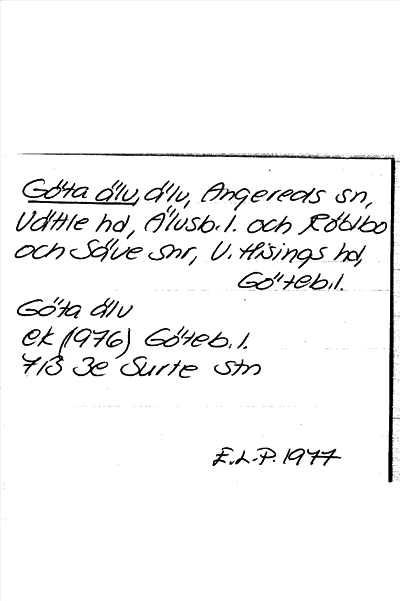 Göta älv, älv, Angereds sn,
Vättle hd, Älvsb. l. och Rödbo
och Säve snr, V. Hisings hd,
Göteb. l.
Göta älv
ek (1976) Göteb. l.
7B 3e Surte stn
E.L-P. 1977